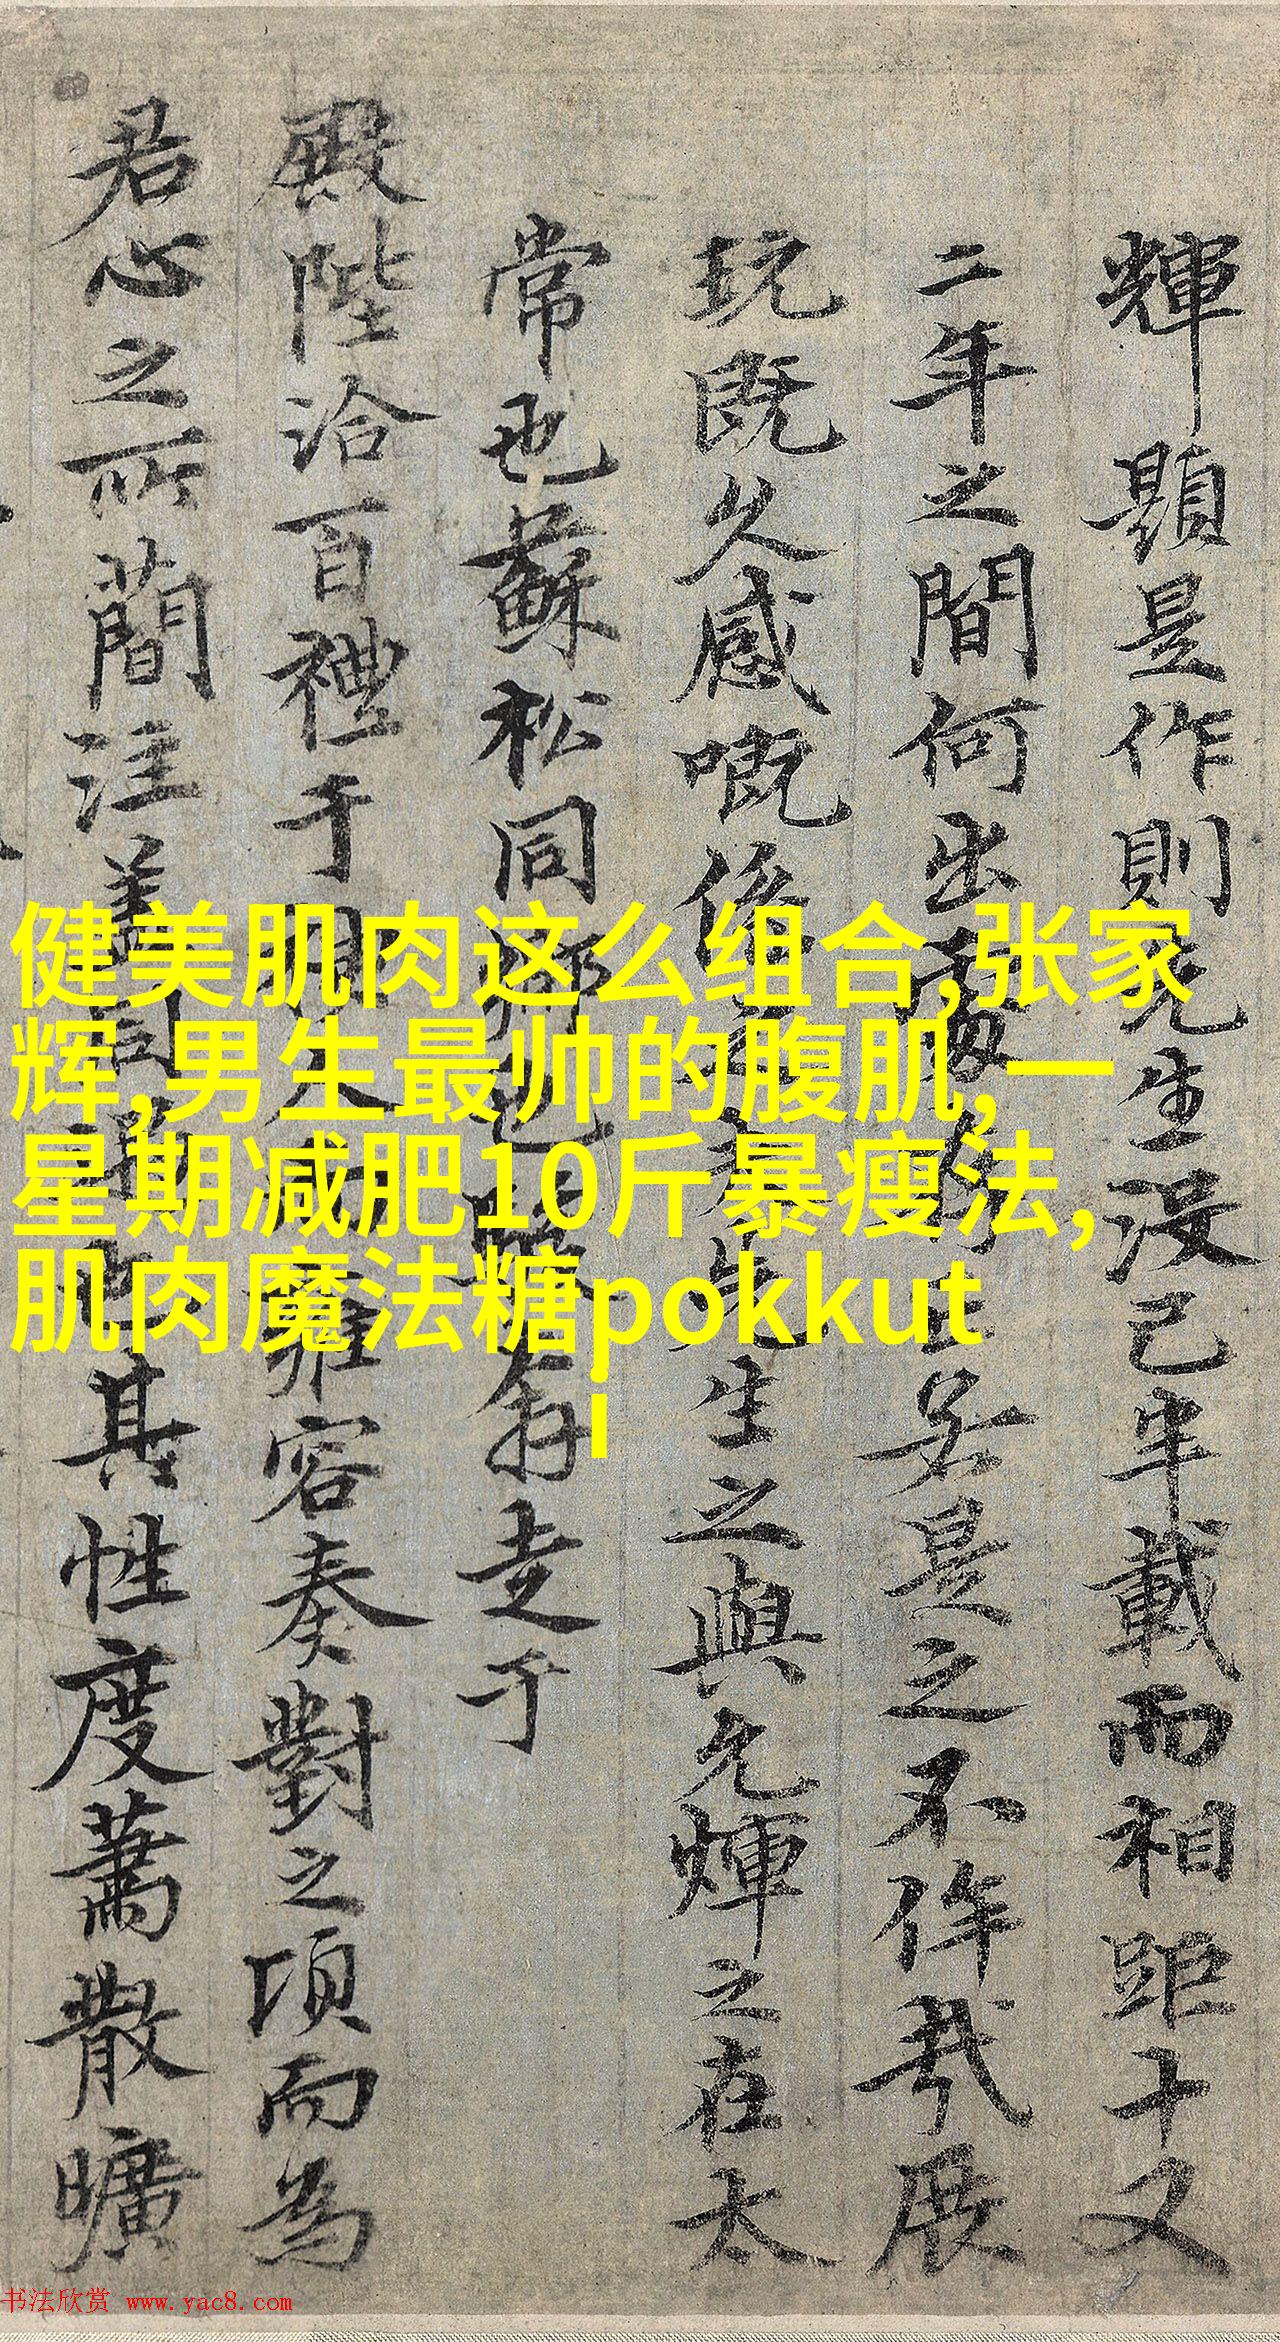 輝顯是作則先生没已半載而相距十又
二年之間何出處的一若是之不侔哉展
玩既久感嘅係之先生之與允輝之在太
常也蘇松同鄉也翁走于
殿陛洽百禮于雍容奏對之頃而為
君心之所簡注其性度蕭散曠
健美肌肉这么组合,张家
辉,男生最帅的腹肌,一
星期减肥10斤暴瘦法,
肌肉魔法糖pokkut
i
书法欣赏 www.yac8.com